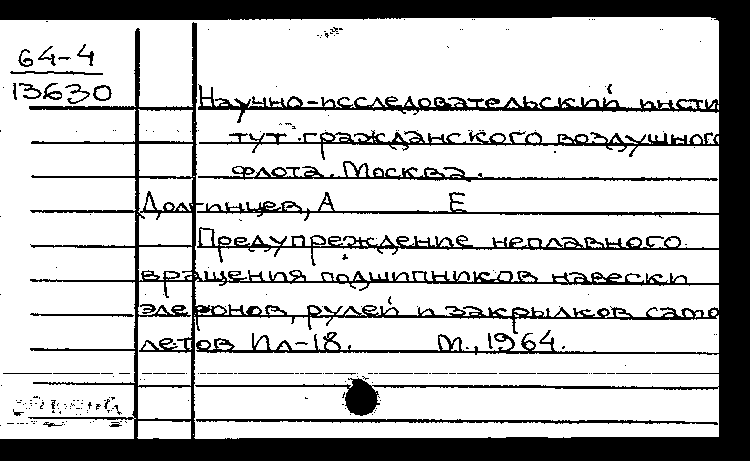 64-4
13630
Научно-исследовательский инсти
тут гражданского воздушного
флота. Москва.
Долгинцев, А Е
Предупреждение неплавного
вращения подшипников навески
элеронов, рулей и закрылков само
летов Ил-18. М., 1964.